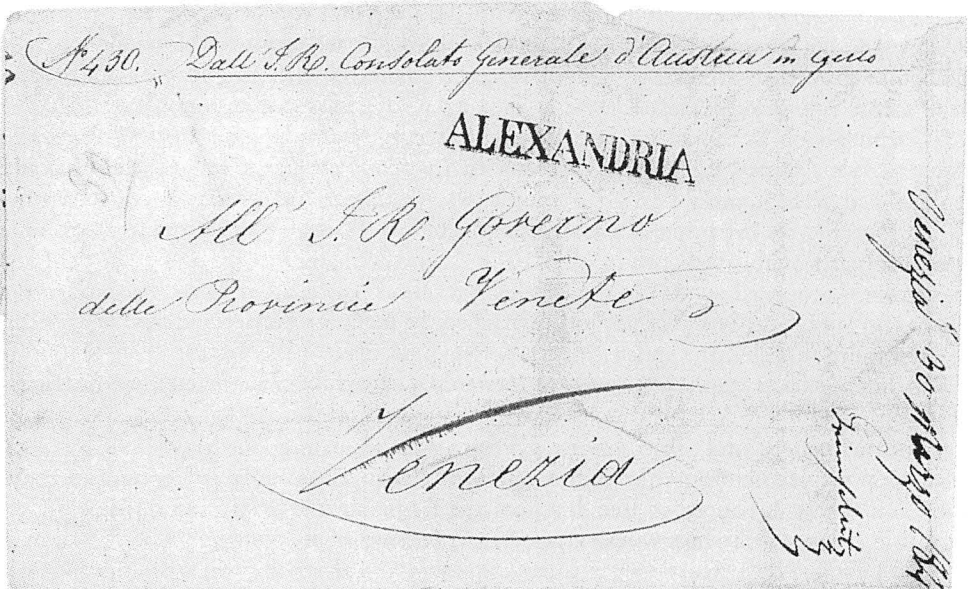 N° 430. Dall' I. R. Consolato Generale d'Austria in Egitto
ALEXANDRIA
All' I. R. Governo
delle Provincie Venete
Venezia
Venezia 30 Marzo